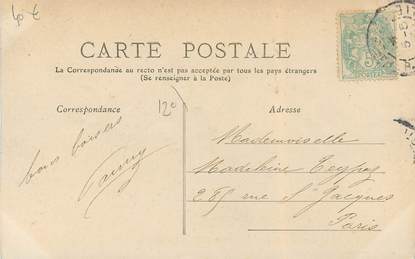 40 €
CARTE POSTALE
La Correspondance au recto n'est pas acceptée par tous les pays étrangers
(Se renseigner à la Poste)
Correspondance
120
Adresse
bons baisers
Fanny
Mademoiselle
Madeleine
285 rue St Jacques
Paris